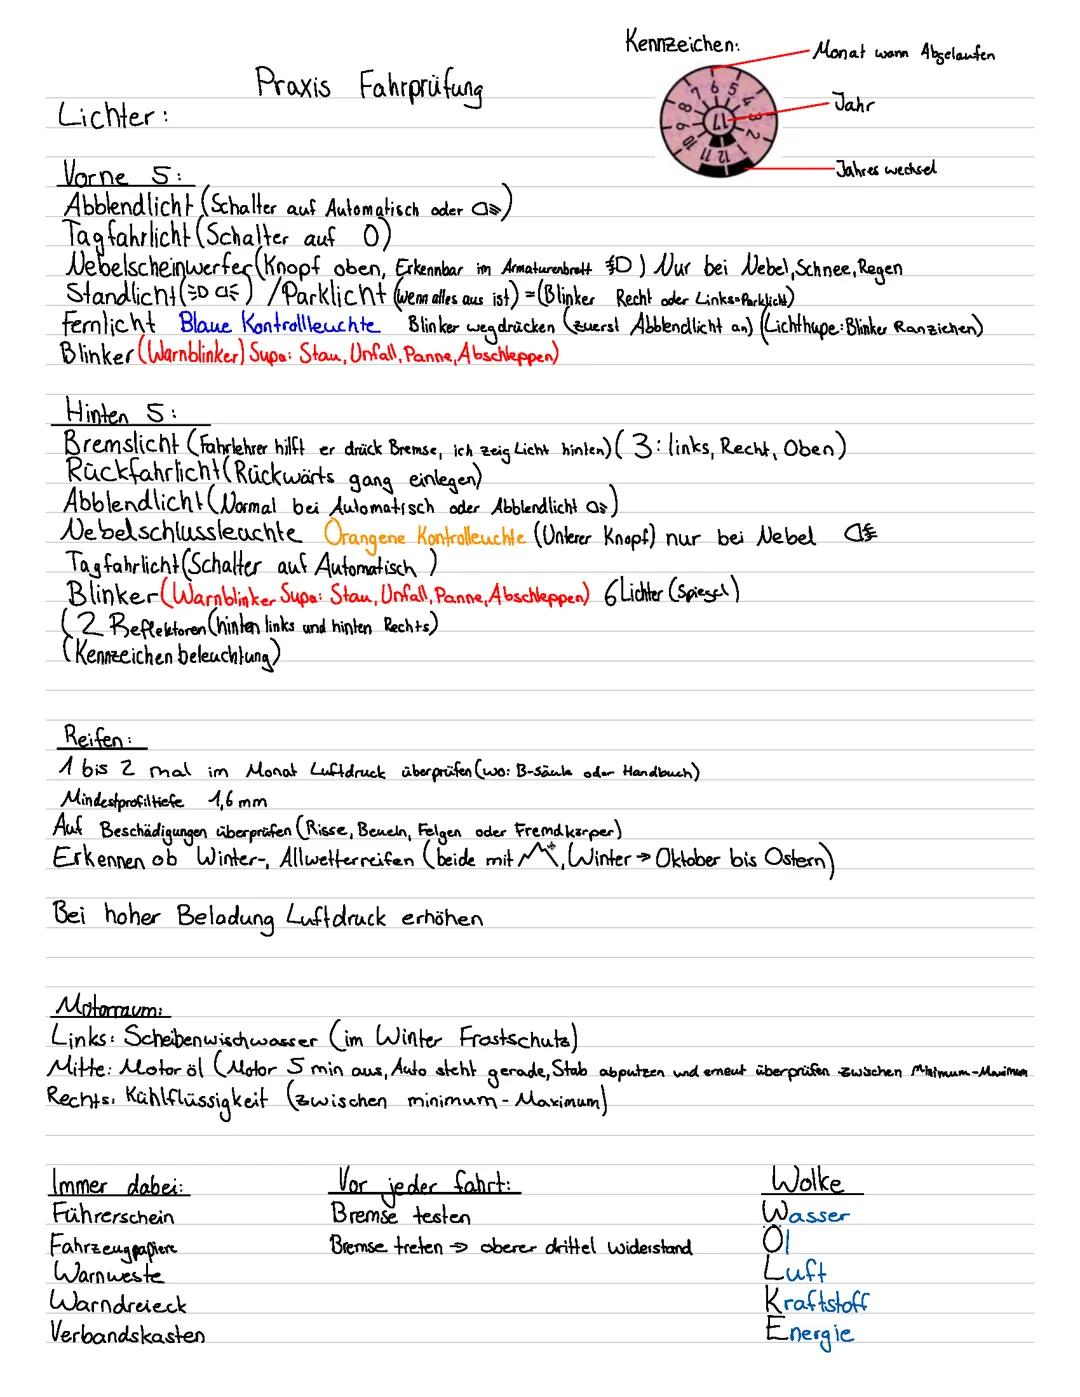 Kennzeichen:
Monat wann Abgelaufen
Praxis Fahrprüfung
Jahr
Lichter:
1 2 3 4 5 6 7 8 9 10 11 12
17
Jahres wechsel
Vorne 5:
Abblendlicht (Schalter auf Automatisch oder )
Tagfahrlicht (Schalter auf 0)
Nebelscheinwerfer (Knopf oben, Erkennbar im Armaturenbrett ) Nur bei Nebel, Schnee, Regen
Standlicht ( ) / Parklicht (wenn alles aus ist) = (Blinker Recht oder Links=Parklicht)
Fernlicht Blaue Kontrollleuchte Blinker wegdrücken (zuerst Abblendlicht an) (Lichthupe: Blinker Ranziehen)
Blinker (Warnblinker) Supa: Stau, Unfall, Panne, Abschleppen)
Hinten 5:
Bremslicht (Fahrlehrer hilft er drück Bremse, ich zeig Licht hinten) (3: links, Recht, Oben)
Rückfahrlicht (Rückwärts gang einlegen)
Abblendlicht (Normal bei Automatisch oder Abblendlicht )
Nebelschlussleuchte Orangene Kontrolleuchte (Unterer Knopf) nur bei Nebel
Tagfahrlicht (Schalter auf Automatisch )
Blinker (Warnblinker Supa: Stau, Unfall, Panne, Abschleppen) 6 Lichter (Spiegel)
(2 Reflektoren (hinten links und hinten Rechts)
(Kennzeichen beleuchtung)
Reifen:
1 bis 2 mal im Monat Luftdruck überprüfen (wo: B-Säule oder Handbuch)
Mindestprofiltiefe 1,6 mm
Auf Beschädigungen überprüfen (Risse, Beueln, Felgen oder Fremdkörper)
Erkennen ob Winter-, Allwetterreifen (beide mit , Winter → Oktober bis Ostern)
Bei hoher Beladung Luftdruck erhöhen
Motorraum:
Links: Scheibenwischwasser (im Winter Frostschutz)
Mitte: Motor öl (Motor 5 min aus, Auto steht gerade, Stab abputzen und erneut überprüfen zwischen Minimum-Maximum
Rechts: Kühlflüssigkeit (zwischen minimum - Maximum)
Immer dabei:
Führerschein
Fahrzeugpapiere
Warnweste
Warndreieck
Verbandskasten
Vor jeder fahrt:
Bremse testen
Bremse treten → oberer drittel widerstand
Wolke
Wasser
Öl
Luft
Kraftstoff
Energie